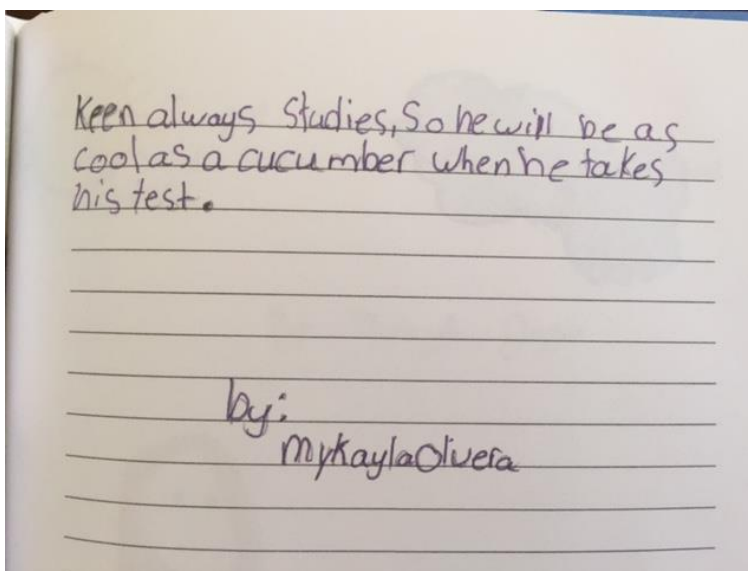 Keen always Studies, So he will be as
cool as a cucumber when he takes
his test.
by:
Mykayla Olvera